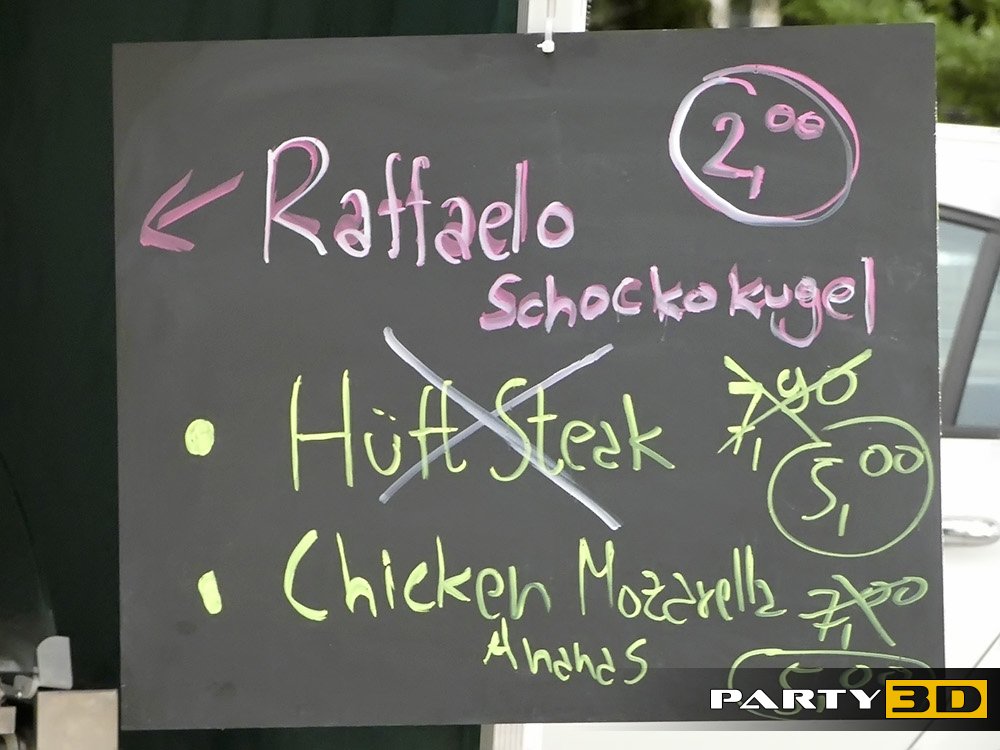 2,00
Raffaelo
Schockokugel
Hüft Steak 7,90
5,00
Chicken Mozarella 7,00
Ananas
5,00
PARTY 3D